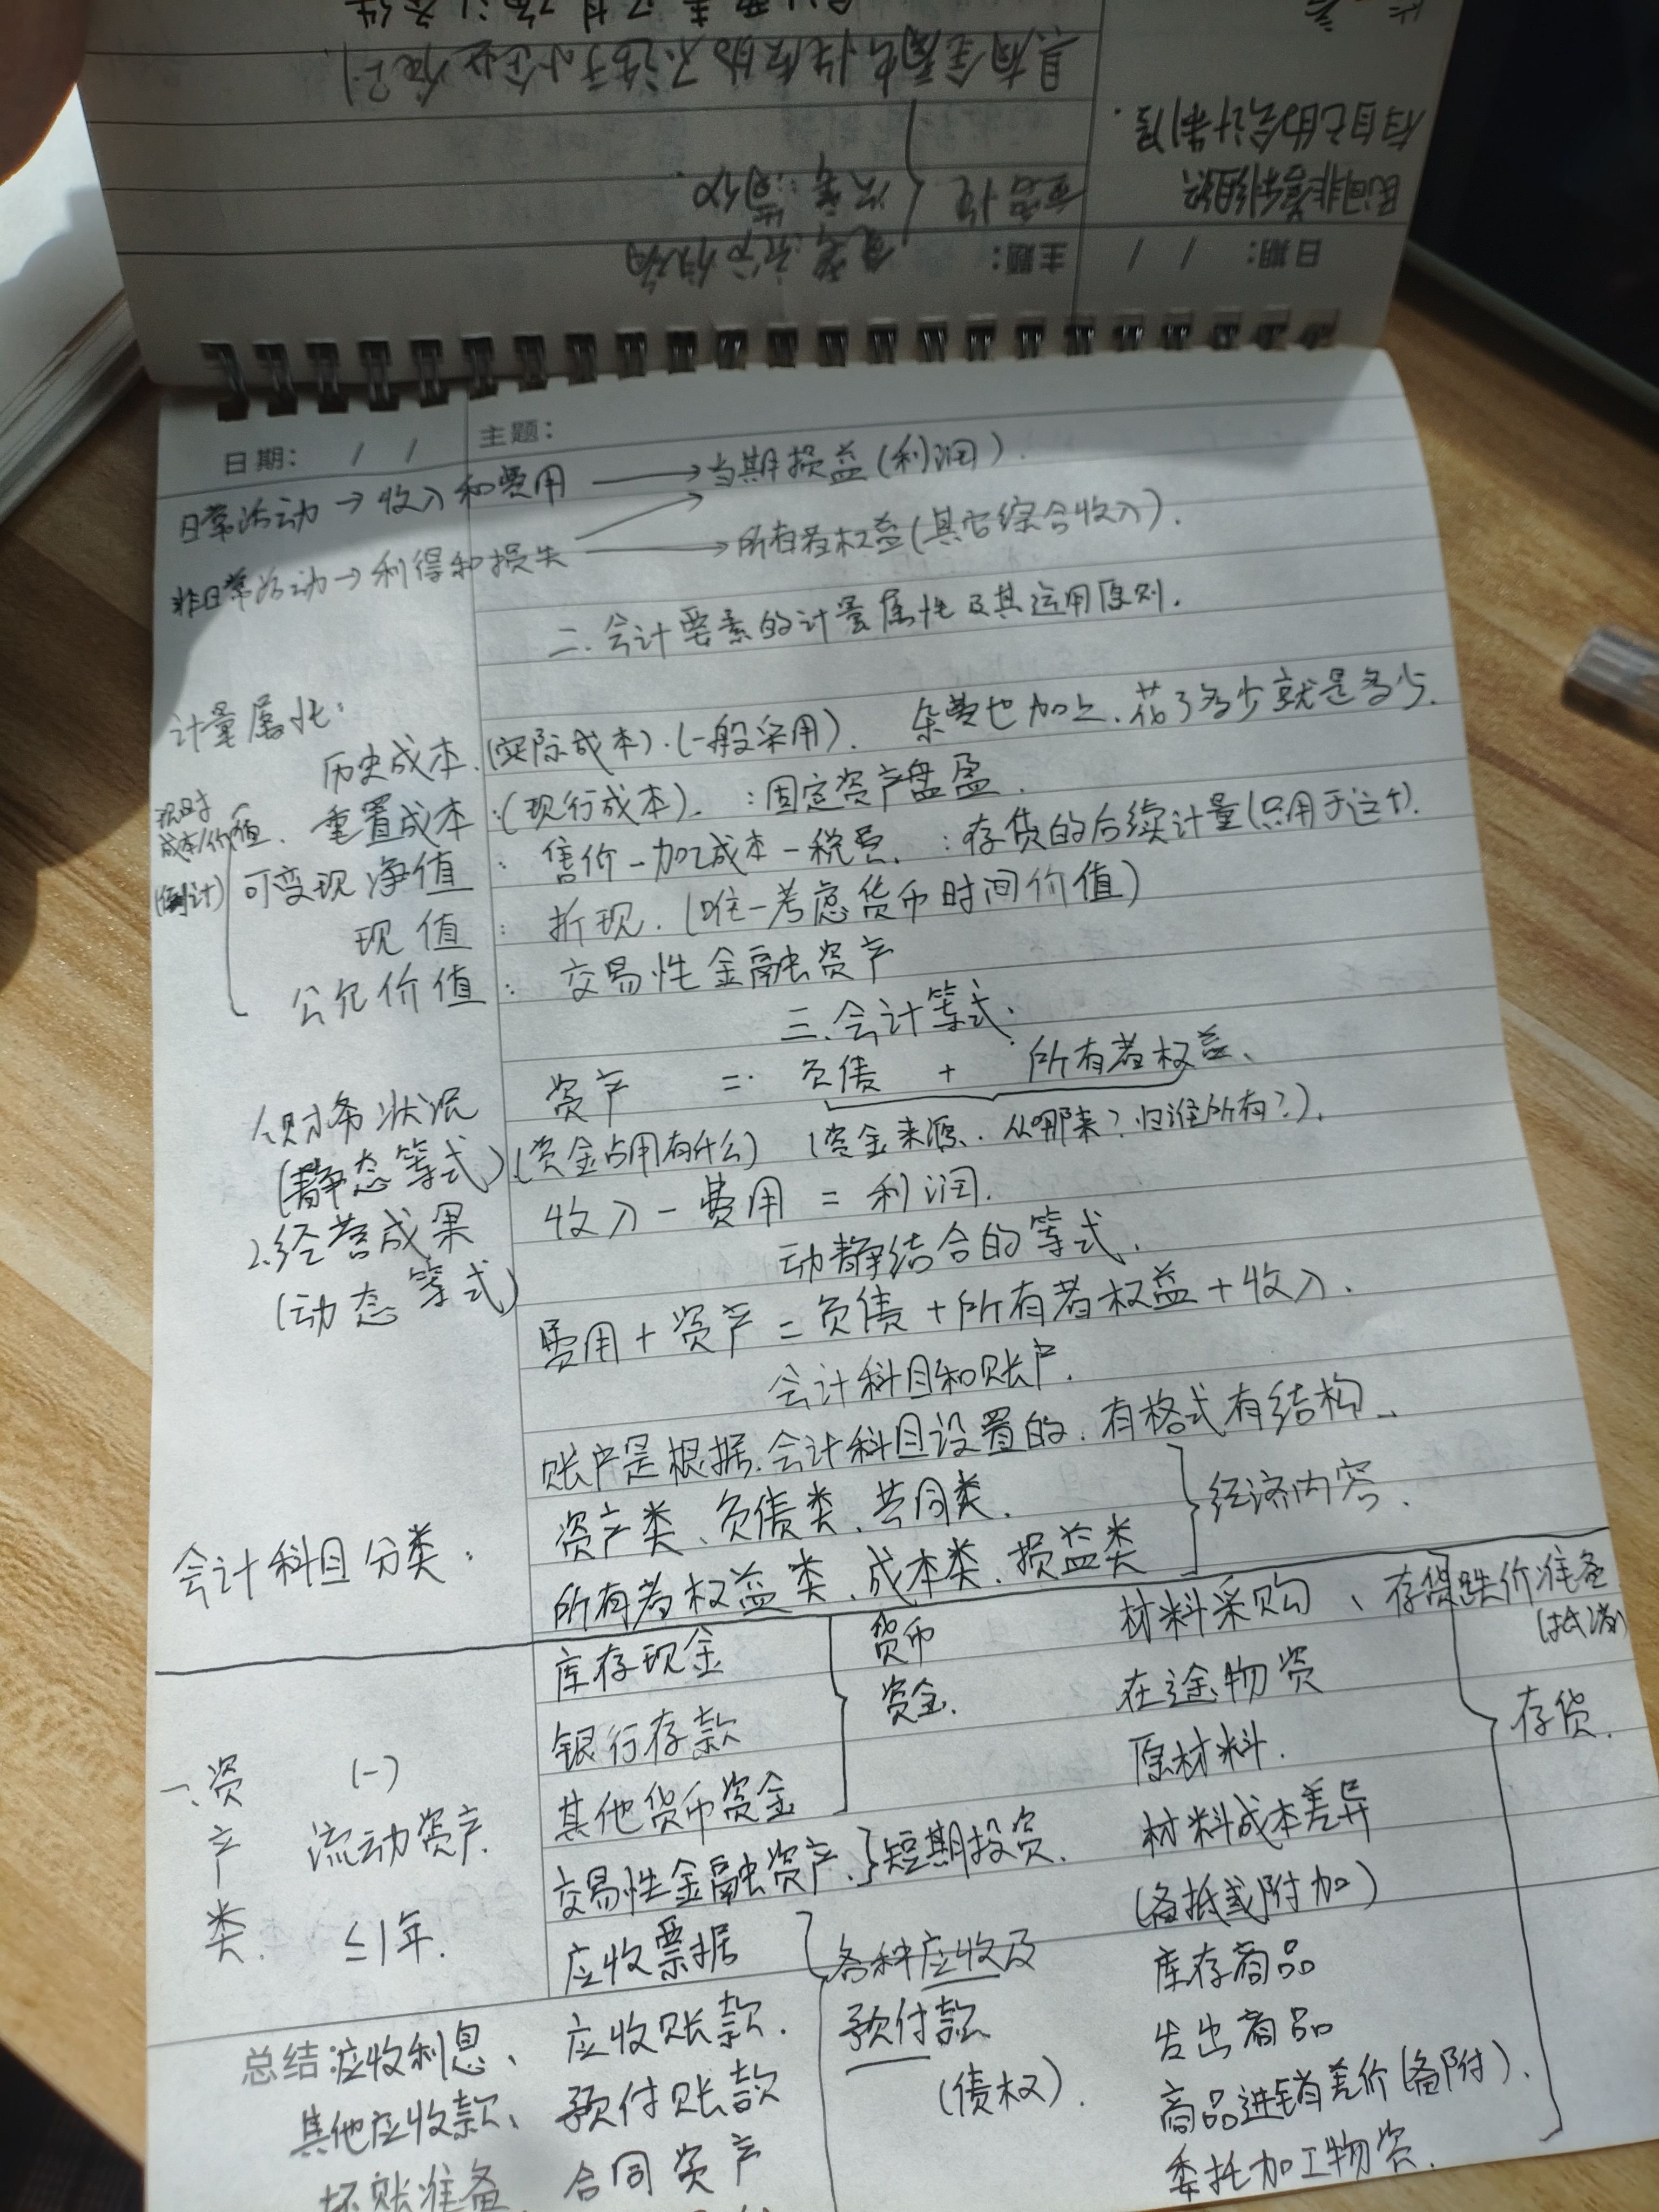 民间非营利组织
有自己的会计制度.
日期: / / 主题:
日期: / / 主题:
日常活动→收入和费用→当期损益(利润).
非日常活动→利得和损失→所有者权益(其它综合收入).
二.会计要素的计量属性及其运用原则.
计量属性:
历史成本.(实际成本).(一般采用). 杂费也加上、花了多少就是多少.
成本/价值.
重置成本:(现行成本). :固定资产盘盈.
可变现净值: 售价-加工成本-税费. :存货的后续计量(只用于这个).
现值: 折现.(唯一考虑货币时间价值)
公允价值: 交易性金融资产
三.会计等式.
1.财务状况 资产 = 负债 + 所有者权益、
(静态等式)(资金占用有什么) (资金来源、从哪来?归谁所有?).
2.经营成果 收入-费用=利润.
(动态等式) 动静结合的等式.
费用+资产=负债+所有者权益+收入.
会计科目和账户.
账户是根据会计科目设置的.有格式有结构、
会计科目分类: 资产类、负债类、共同类. 经济内容.
所有者权益类、成本类、损益类
一、资产类. (一) 流动资产. ≤1年.
库存现金
银行存款
其他货币资金
货币资金.
交易性金融资产.}短期投资.
应收票据
应收账款.
预付账款
合同资产
各种应收及预付款
(债权).
总结:应收利息、
其他应收款、
坏账准备
材料采购、存货跌价准备
(抵减)
在途物资
原材料.
材料成本差异
(备抵或附加)
库存商品
发出商品
商品进销差价(备附).
委托加工物资.
存货.